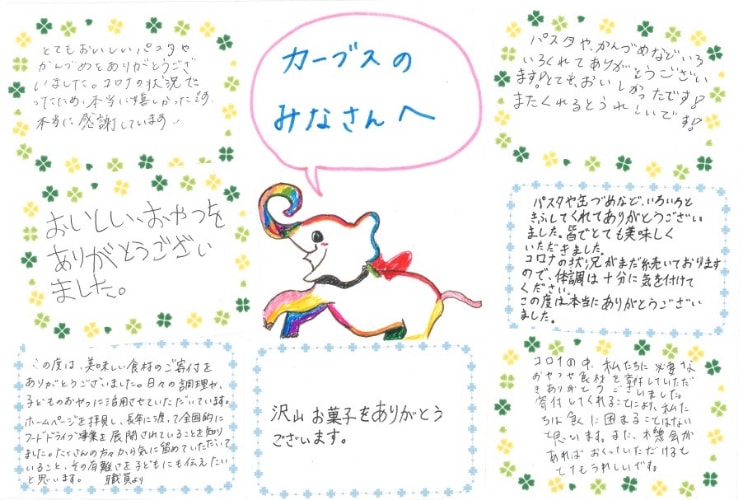 カーブスの
みなさんへ
とてもおいしいパスタや
かんづめをありがとうござ
いました。コロナの状況だ
ったため、本当に嬉しかったです。
本当に感謝しています。
パスタや、かんづめなどいろ
いろくれてありがとうござい
ます!とても、おいしかったです!
またくれるとうれしいです!
おいしいおやつを
ありがとうござい
ました。
パスタや缶づめなど、いろいろと
きふしてくれてありがとうござい
ました。皆でとても美味しく
いただきました。
コロナの状況がまだ続いております
ので、体調は十分に気を付けて
ください。
この度は本当にありがとうござい
ました。
この度は、美味しい食材のご寄付を
ありがとうございました。日々の調理や、
子どものおやつに活用させていただいています。
ホームページを拝見し、長年に渡って全国的に
フードドライブ事業を展開されていることを知り
ました。たくさんの方々から気に留めていただいて
いること、その有難さを子どもにも伝えたい
と思います。 職員より
沢山お菓子をありがとう
ございます。
コロナの中、私たちに必要な
おやつや食材を寄付していただ
きありがとうございました。
寄付してくれることにより、私た
ちは食に困まることはない
と思います。また、機会が
あればおくっていただけると
とてもうれしいです。